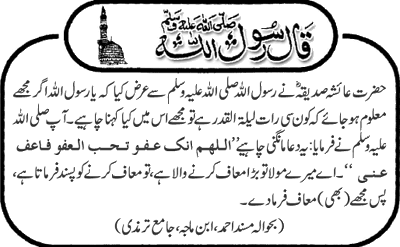 قال رسول اللہ صلی اللہ علیہ وسلم
حضرت عائشہ صدیقہؓ نے رسول اللہ صلی اللہ علیہ وسلم سے عرض کیا کہ یا رسول اللہ اگر مجھے
معلوم ہو جائے کہ کون سی رات لیلۃ القدر ہے تو مجھے اس میں کیا کہنا چاہیے۔ آپ صلی اللہ
علیہ وسلم نے فرمایا: یہ دعا مانگنی چاہیے ’’اللھم انک عفو تحب العفو فاعف
عنی‘‘۔ اے میرے مولا تو بڑا معاف کرنے والا ہے، تو معاف کرنے کو پسند فرماتا ہے،
پس مجھے (بھی) معاف فرما دے۔
(بحوالہ مسند احمد، ابن ماجہ، جامع ترمذی)